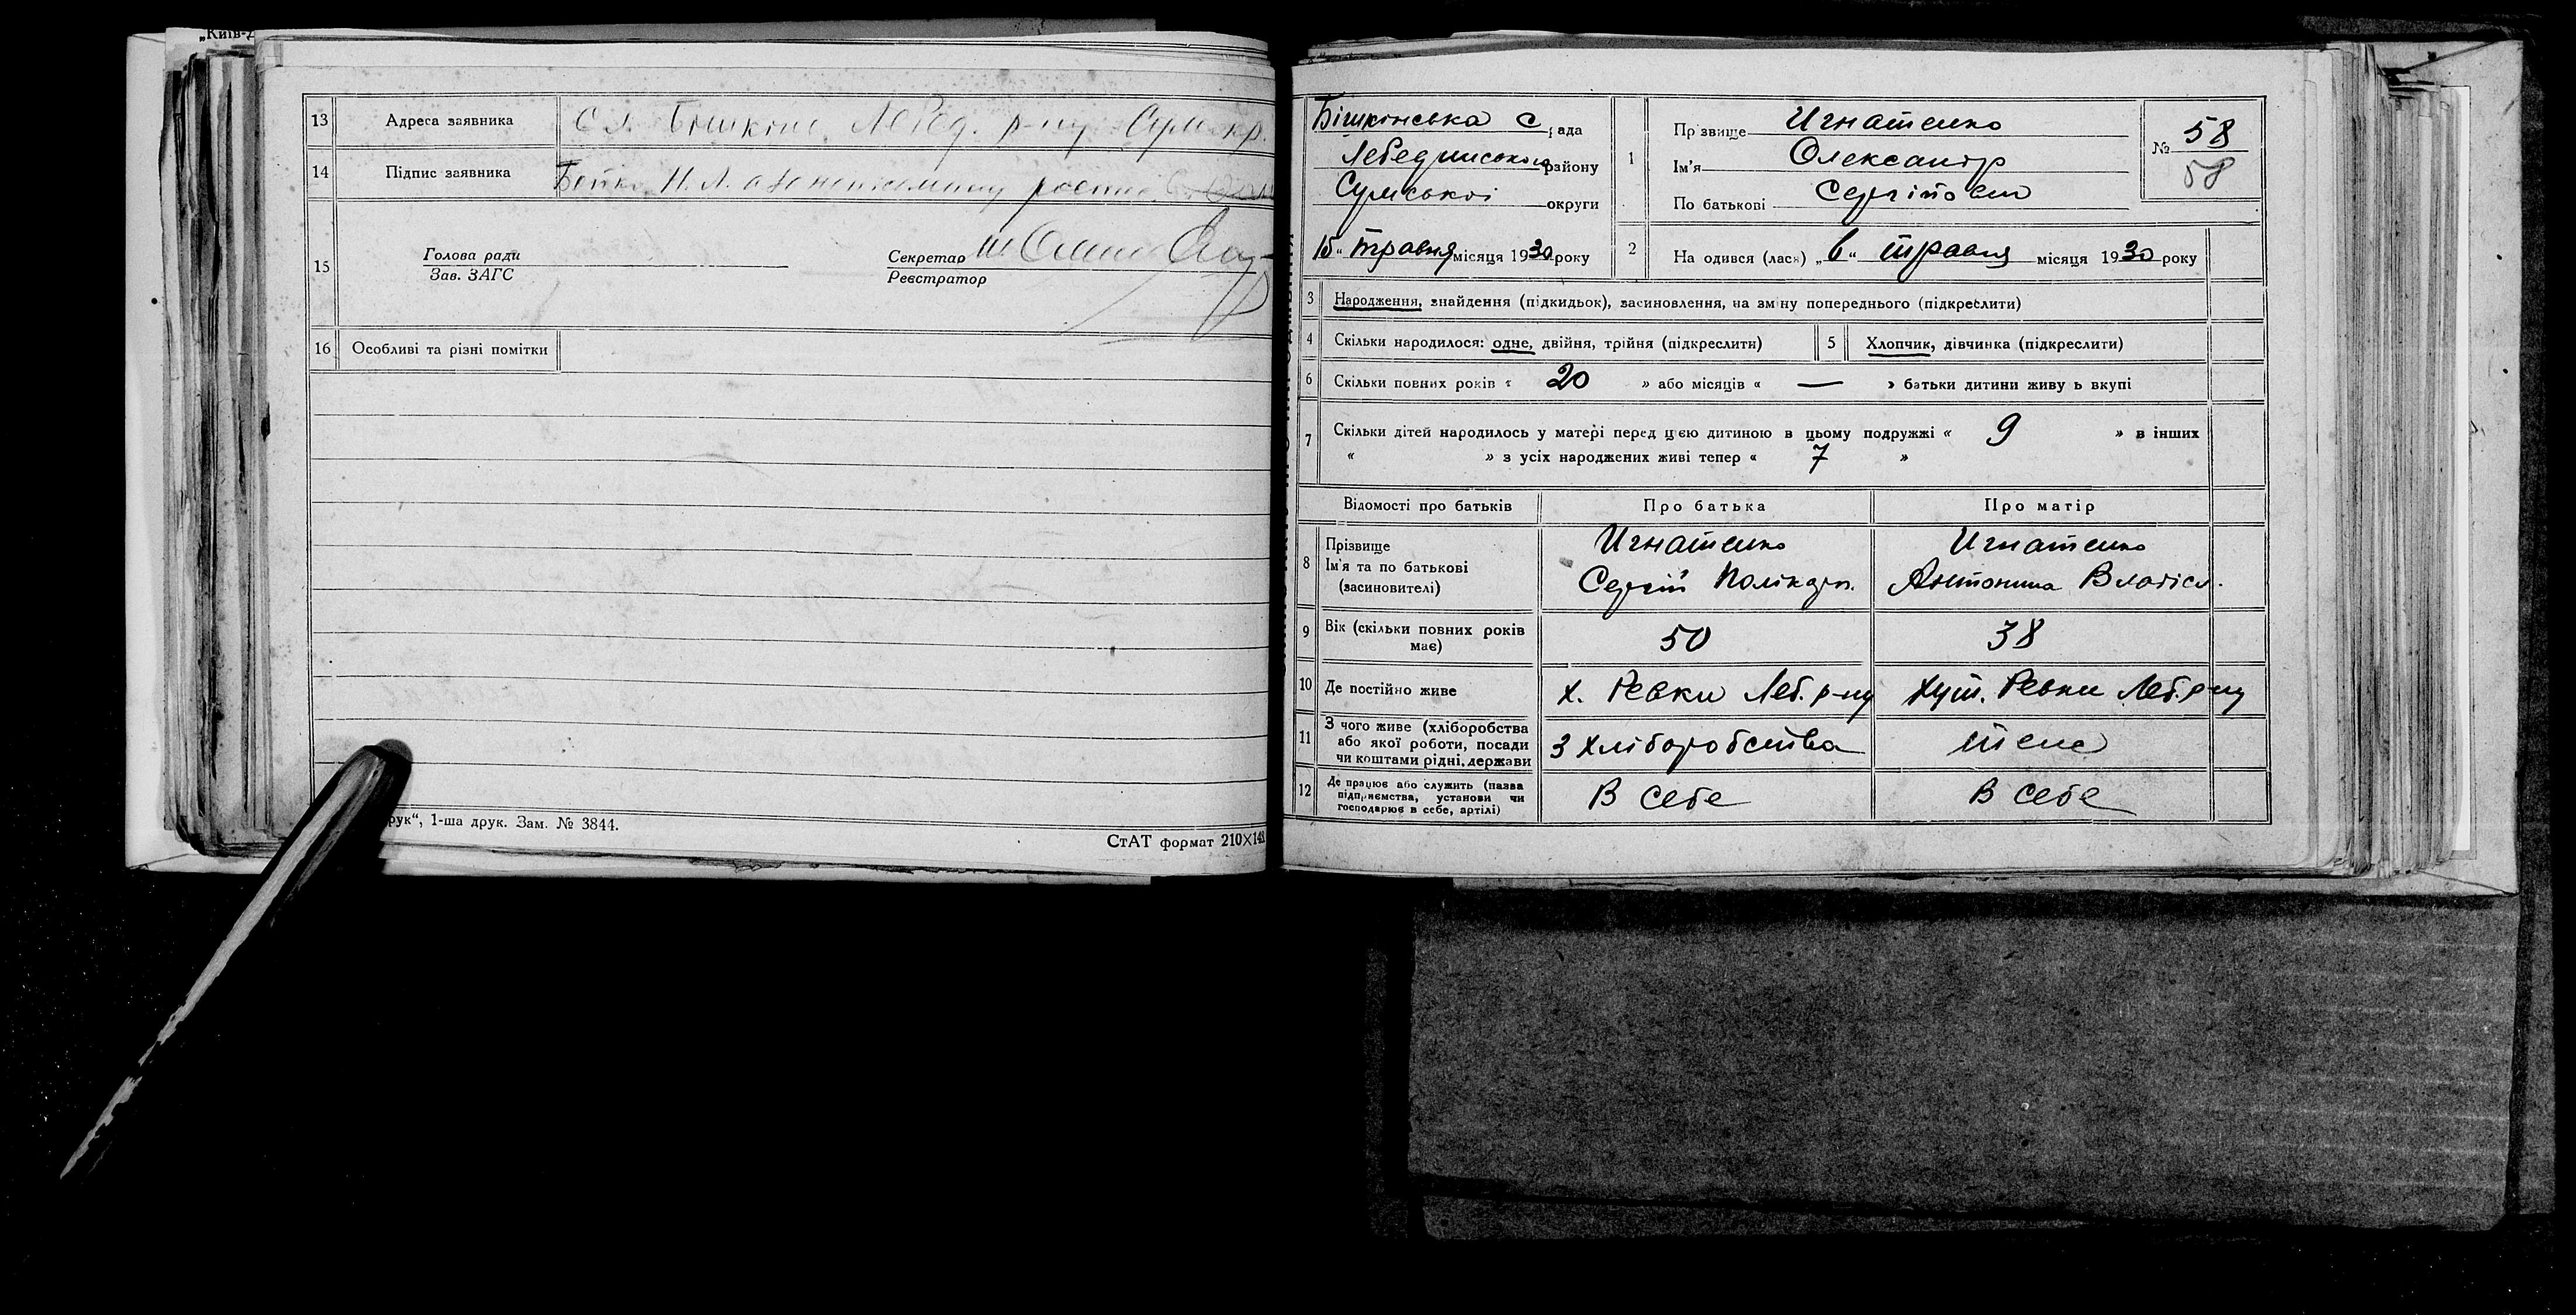 „Київ-Д
13 Адреса заявника С л. Бишкінь Лебед. р-ну Сум окр.
14 Підпис заявника Бойко Н. Л. а за неписьмену
15 Голова ради Секретар
Зав. ЗАГС Реєстратор
16 Особливі та різні помітки
рук“, 1-ша друк. Зам. № 3844.
СтАТ формат 210×148
Бішкінська С рада
Лебединського району
Сумської округи
15 „ травня місяця 1930 року
1 Прізвище Игнатенко
Ім'я Олександр
По батькові Сергійович
№ 58
58
2 На одився (лась) „ 6 “ травня місяця 1930 року
3 Народження, знайдення (підкидьок), засиновлення, на зміну попереднього (підкреслити)
4 Скільки народилося: одне, двійня, трійня (підкреслити) 5 Хлопчик, дівчинка (підкреслити)
6 Скільки повних років « 20 » або місяців « — » батьки дитини живу ь вкупі
7 Скільки дітей народилось у матері перед цією дитиною в цьому подружжі « 9 » в інших
« » з усіх народжених живі тепер « 7 »
Відомості про батьків Про батька Про матір
8 Прізвище Игнатенко Игнатенко
Ім'я та по батькові Сергій Полікарп. Антонина Владісл.
(засиновителі)
9 Вік (скільки повних років має) 50 38
10 Де постійно живе х. Ревки Леб. р-ну Хут. Ревки Леб. р-ну
11 З чого живе (хліборобства
або якої роботи, посади З хліборобства теж
чи коштами рідні, держави
12 Де працює або служить (назва
підприємства, установи чи В себе В себе
господарює в себе, артілі)